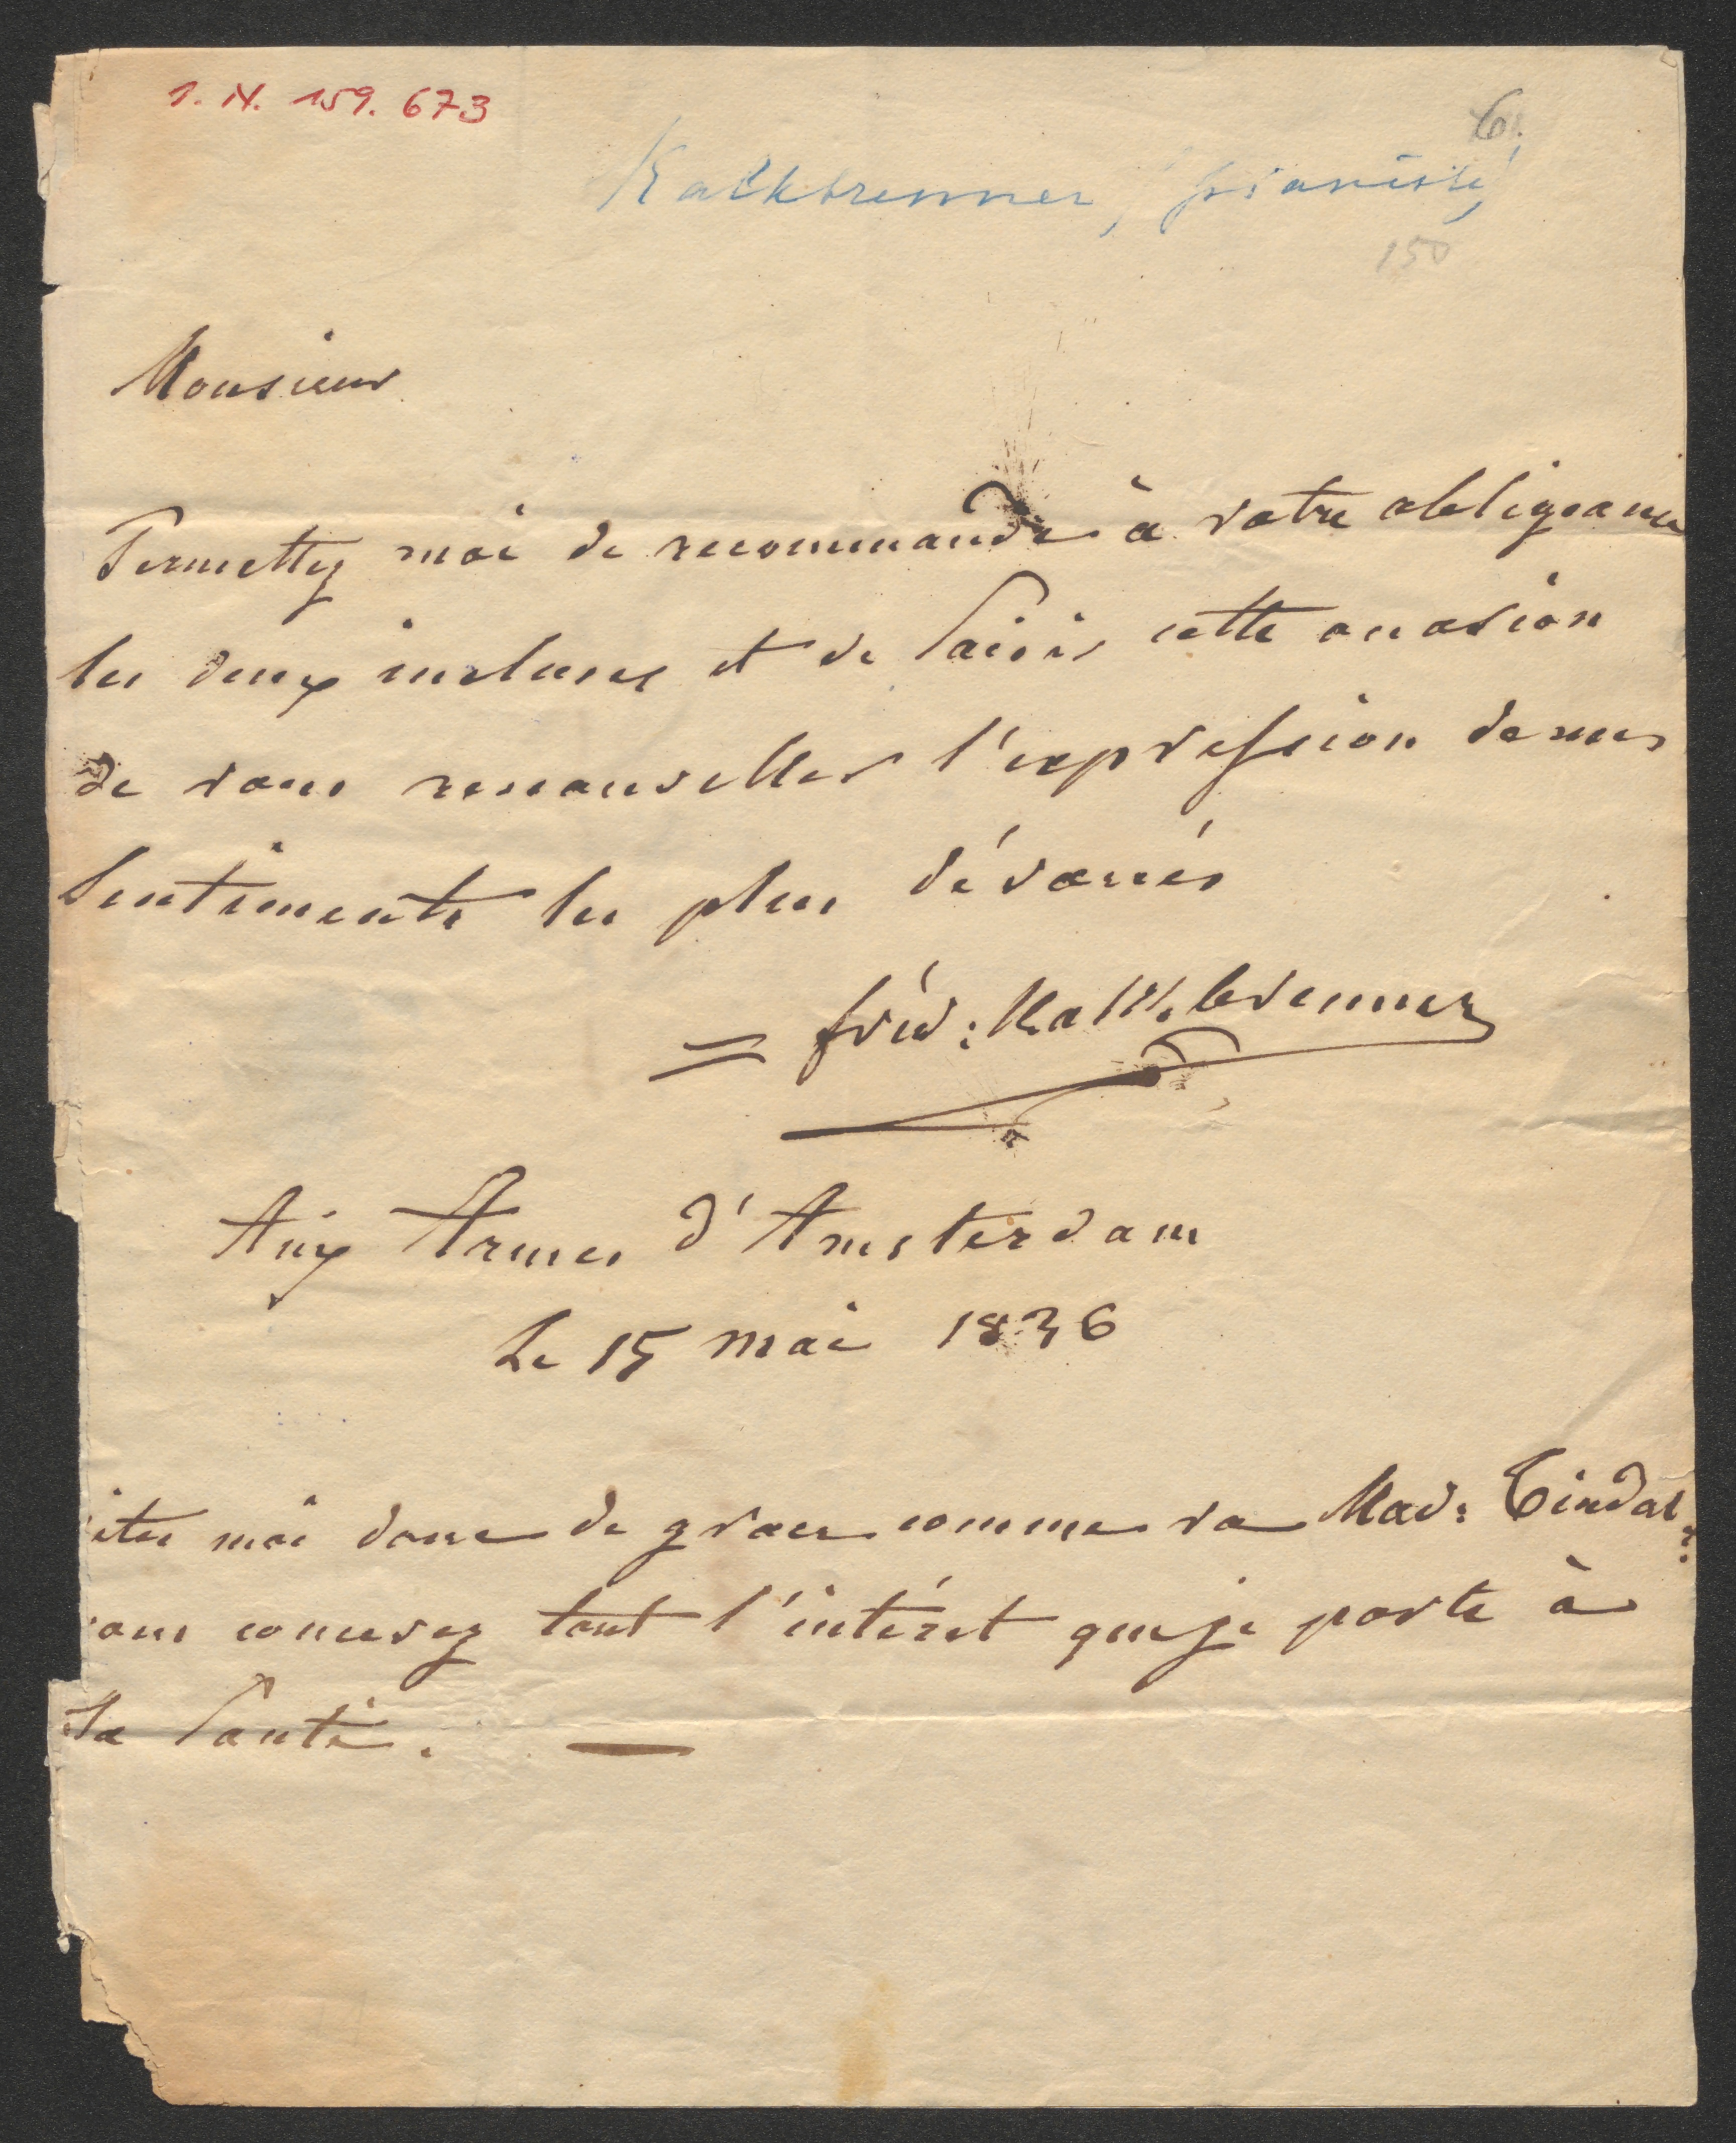 I. N. 159.673
6.
Kalkbrenner, (pianiste)
150
Monsieur
Permettez moi de recommander à votre obligeance
les deux incluses et de Saisir cette occasion
de vous renouveller l'expression de mes
Sentiments les plus dévoués
= fréd: Kalkbrenner
Aux Armes d'Amsterdam
Le 15 mai 1836
ites moi donc de grace comme va Mad: Tindal?
vous concevez tout l'intéret que je porte à
Sa Santé. —